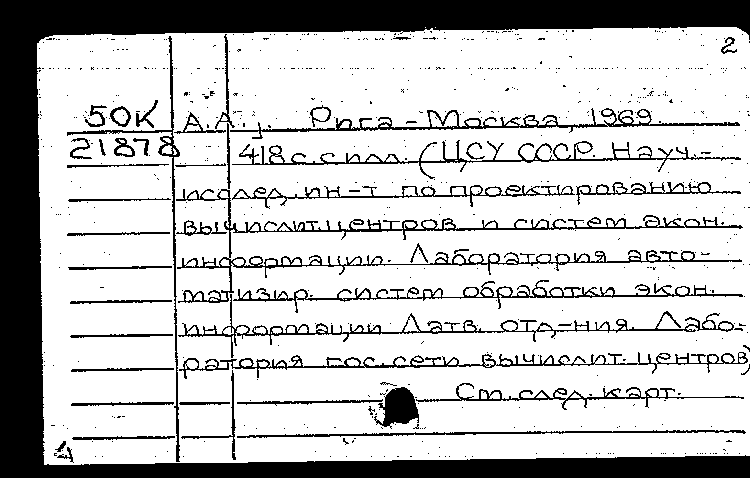 2
50К А.А., Рига - Москва, 1969.
21878 418 с. с илл. (ЦСУ СССР. Науч.-
исслед. ин-т по проектированию
вычислит. центров и систем экон.
информации. Лаборатория авто-
матизир. систем обработки экон.
информации Латв. отд-ния. Лабо-
ратория гос. сети вычислит. центров)
См. след. карт.